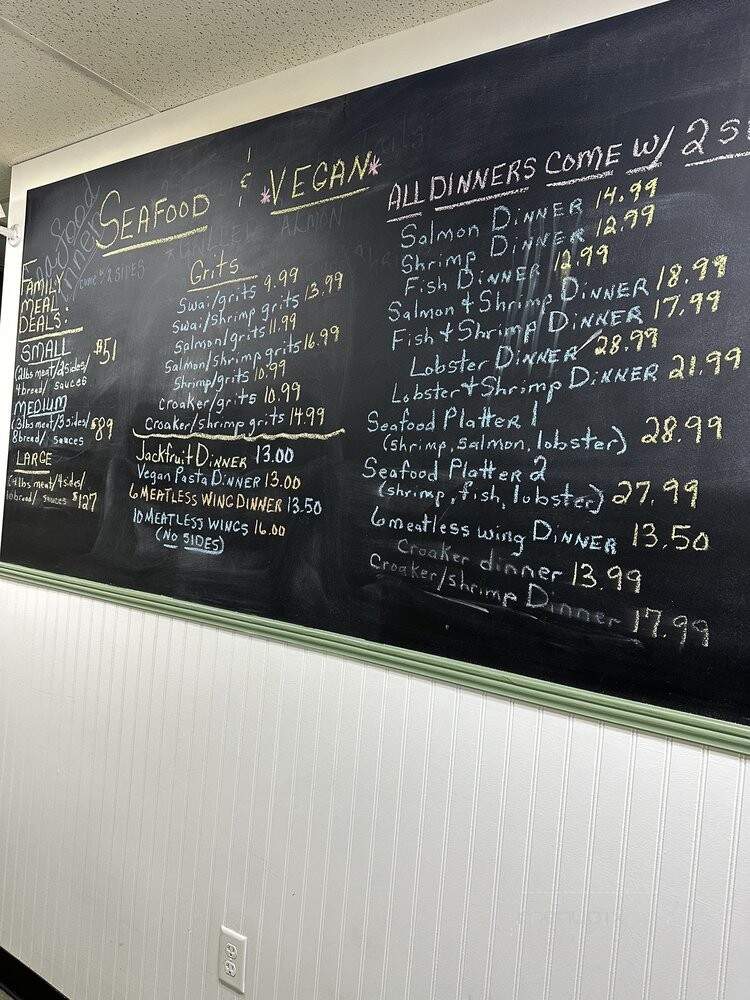 SEAFOOD & *VEGAN*
FAMILY
MEAL
DEALS:
SMALL $51
(2lbs meat/2sides/
4bread/ sauces
MEDIUM
(3lbs meat/3sides/ $89
8bread/ sauces
LARGE
(4lbs meat/4sides/
bread/ sauces $127
Grits
Swai/grits 9.99
Swai/shrimp grits 13.99
Salmon/grits 11.99
Salmon/shrimp grits 16.99
Shrimp/grits 10.99
croaker/grits 10.99
Croaker/shrimp grits 14.99
Jackfruit Dinner 13.00
Vegan Pasta Dinner 13.00
6 MEATLESS WING DINNER 13.50
10 MEATLESS WINGS 16.00
(No SIDES)
ALL DINNERS COME W/ 2 S
Salmon Dinner 14.99
Shrimp Dinner 12.99
Fish Dinner 12.99
Salmon + Shrimp Dinner 18.99
Fish + Shrimp Dinner 17.99
Lobster Dinner 28.99
Lobster + Shrimp Dinner 21.99
Seafood Platter 1
(shrimp, salmon, lobster) 28.99
Seafood Platter 2
(shrimp, fish, lobster) 27.99
6 meatless wing Dinner 13.50
Croaker dinner 13.99
Croaker/shrimp Dinner 17.99